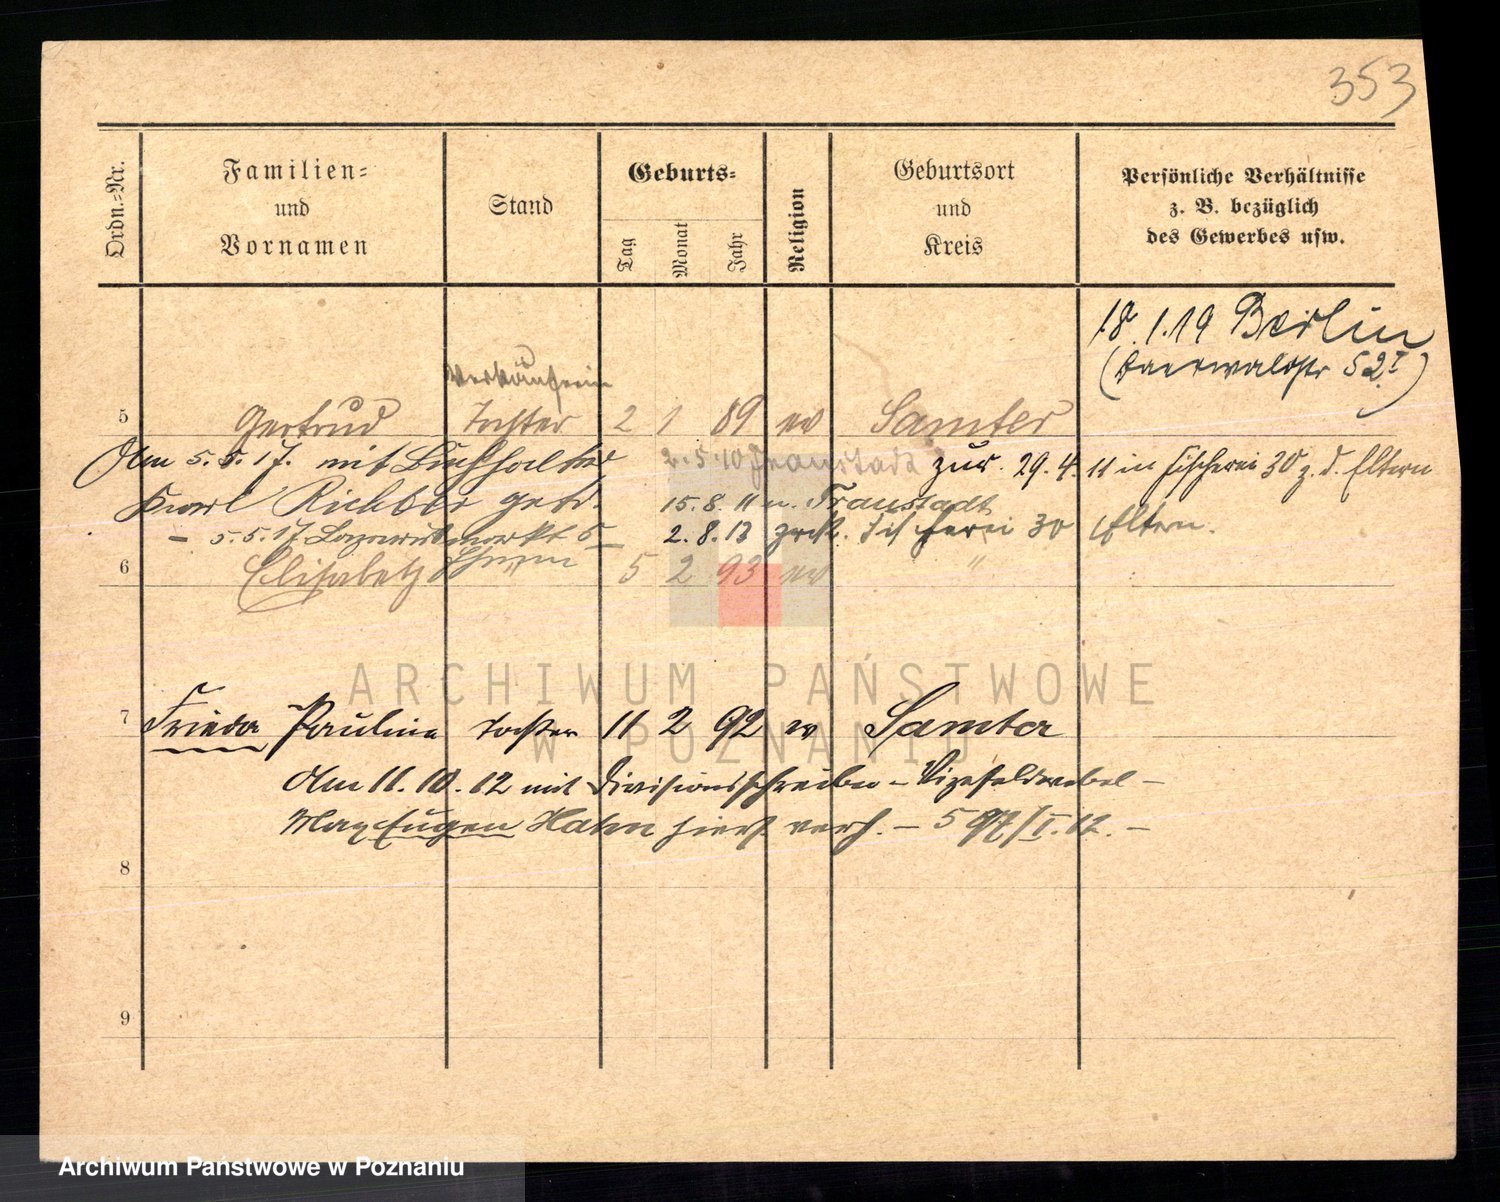 353
Ordn.-Nr.
Familien-
und
Vornamen
Stand
Geburts-
Tag
Monat
Jahr
Religion
Geburtsort
und
Kreis
Persönliche Verhältnisse
z. B. bezüglich
des Gewerbes usw.
18.1.19 Berlin
52 I)
Verkäuferin
5 Gertrud Tochter 2 1 89 ev Samter
Am 5.5.17. mit Buchhalter 2.5.10 Fraustadt zur. 29.4.11 in Fischerei 30 z. d. Eltern
Karl Richter getr. 15.8.11 n. Fraustadt
– 5.5.17 Lazarusmarkt 5 – 2.8.13 zrck. Fischerei 30 Eltern.
6 Elisabeth " 5 2 93 ev "
7 Frieda Pauline Tochter 11 2 92 ev Samter
Am 11.10.12 mit Divisionsschreiber – Vizefeldwebel –
Max Eugen Hahn hierst verh. – 597/I.12. –
8
9
ARCHIWUM PAŃSTWOWE
W POZNANIU
Archiwum Państwowe w Poznaniu